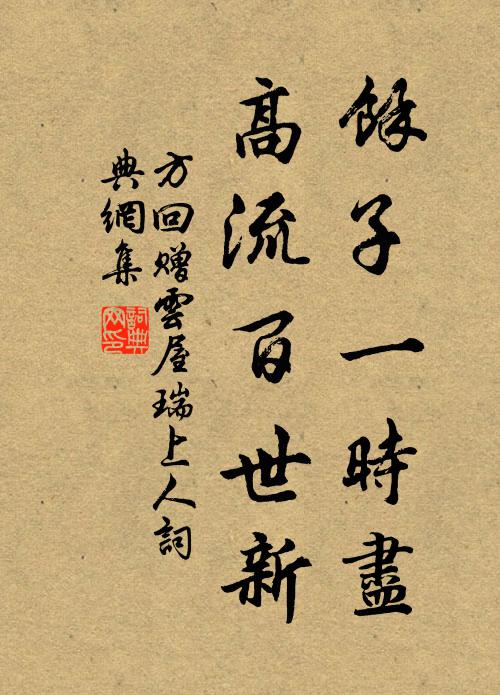 餘子一時盡
高流百世新
方回赠雲屋瑞上人詞
典網集
詞典
网印